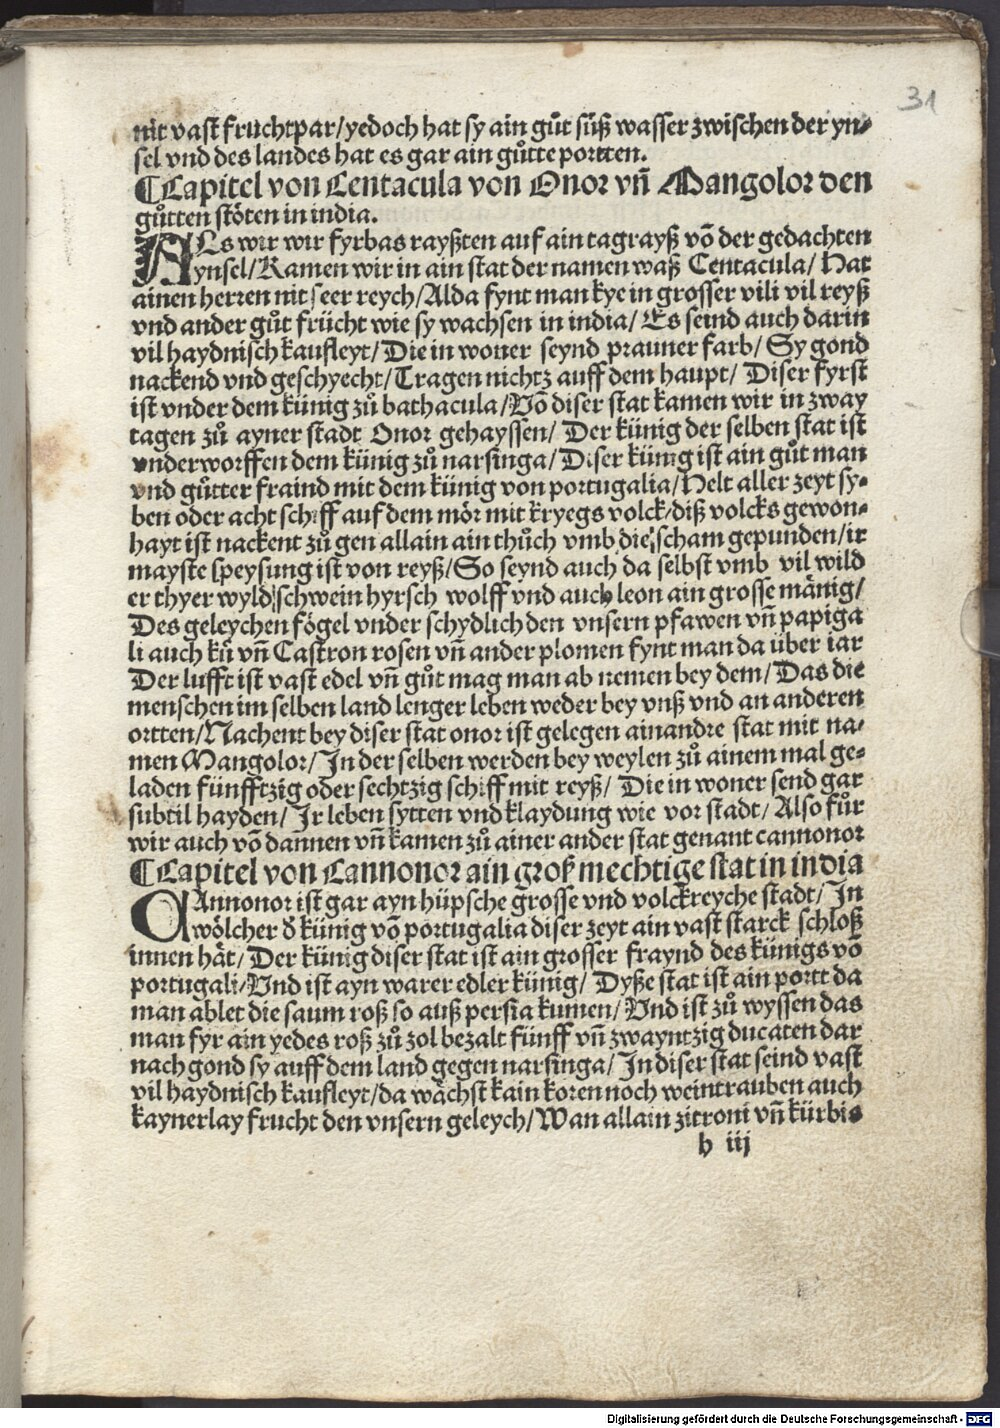 31
nit vast fruchtpar/yedoch hat sy ain gůt süß wasser zwischen der yn-
sel vnd des landes hat es gar ain gůtte portten.
¶Capitel von Centacula von Onor vñ Mangolor den
gůtten stöten in india.
ALs wir wir fyrbas rayßten auf ain tagrayß võ der gedachten
ynsel/Kamen wir in ain stat der namen waß Centacula/Hat
ainen herren nit seer reych/Alda fynt man kye in grosser vili vil reyß
vnd ander gůt frücht wie sy wachsen in india/Es seind auch darin
vil haydnisch kaufleyt/Die in woner seynd prauner farb/Sy gond
nackend vnd geschyecht/Tragen nichtz auff dem haupt/Diser fyrst
ist vnder dem künig zů bathacula/Võ diser stat kamen wir in zway
tagen zů ayner stadt Onor gehayssen/Der künig der selben stat ist
vnderworffen dem künig zů narsinga/Diser künig ist ain gůt man
vnd gůtter fraind mit dem künig von portugalia/Helt aller zeyt sy-
ben oder acht schiff auf dem mör mit kryegs volck/diß volcks gewon-
hayt ist nackent zů gen allain ain thůch vmb die scham gepunden/ir
mayste speysung ist von reyß/So seynd auch da selbst vmb vil wild
er thyer wyld schwein hyrsch wolff vnd auch leon ain grosse mänig/
Des geleychen fögel vnder schydlich den vnsern pfawen vñ papiga
li auch kü vñ Castron rosen vñ ander plomen fynt man da über iar
Der lufft ist vast edel vñ gůt mag man ab nemen bey dem/Das die
menschen im selben land lenger leben weder bey vnß vnd an anderen
ortten/Nachent bey diser stat onor ist gelegen ainandre stat mit na-
men Mangolor/In der selben werden bey weylen zů ainem mal ge-
laden fünfftzig oder sechtzig schiff mit reyß/Die in woner send gar
subtil hayden/Ir leben sytten vnd klaydung wie vor stadt/Also fůr
wir auch võ dannen vñ kamen zů ainer ander stat genant cannonor
¶Capitel von Cannonor ain groß mechtige stat in india
CAnnonor ist gar ayn hüpsche grosse vnd volckreyche stadt/In
wölcher d̕ künig võ portugalia diser zeyt ain vast starck schloß
innen hät/Der künig diser stat ist ain grosser fraynd des künigs võ
portugali/Vnd ist ayn warer edler künig/Dyße stat ist ain portt da
man ablet die saum roß so auß persia kumen/Vnd ist zů wyssen das
man fyr ain yedes roß zů zol bezalt fünff vñ zwayntzig ducaten dar
nach gond sy auff dem land gegen narsinga/In diser stat seind vast
vil haydnisch kaufleyt/da wächst kain koren noch weintrauben auch
kaynerlay frucht den vnsern geleych/Wan allain zitroni vñ kürbis
b iij
Digitalisierung gefördert durch die Deutsche Forschungsgemeinschaft - DFG